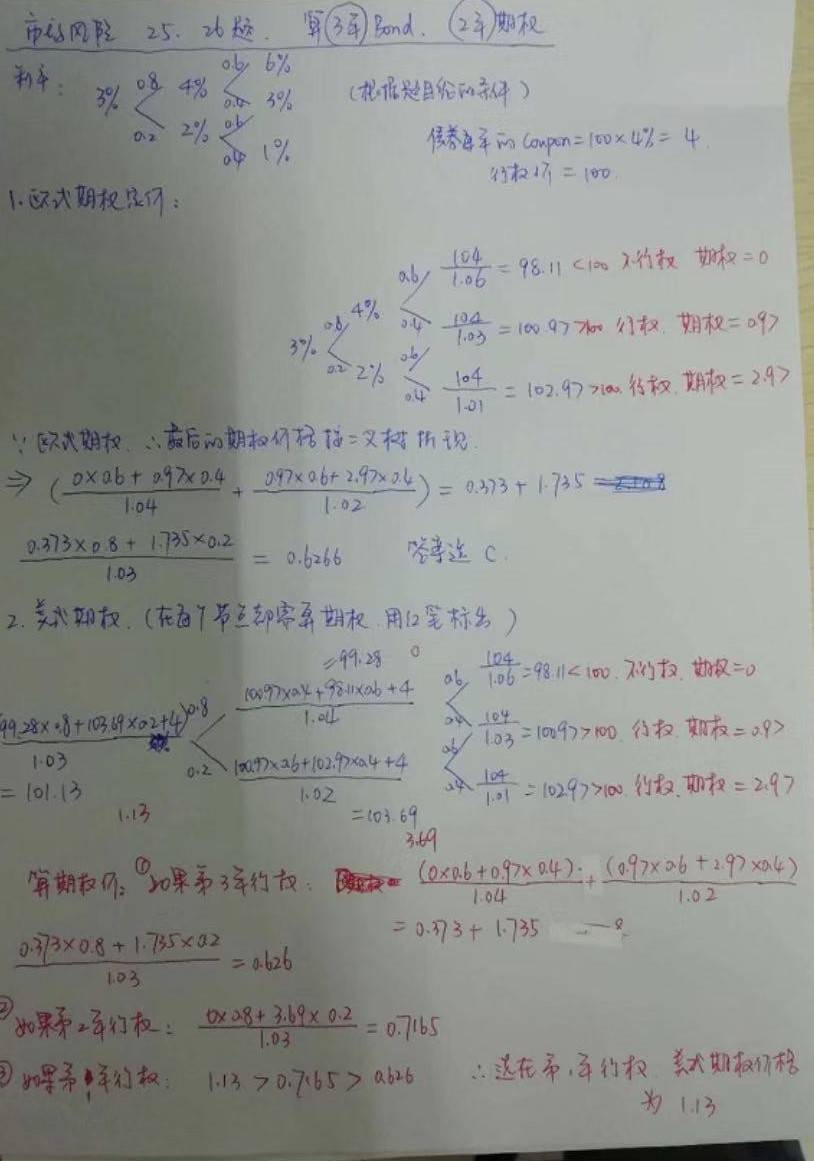 市场风险 25. 26题. 算(3年)Bond. (2年)期权
利率: 3% 0.8 4% 0.6 6%
0.4 3% (根据题目给的条件)
0.2 2% 0.6
0.4 1%
债券每年的Coupon=100×4%=4.
行权价=100.
1.欧式期权定价:
0.6 104/1.06 = 98.11 <100 不行权 期权=0
3% 0.8 4% 0.4 104/1.03 = 100.97 >100 行权. 期权=0.97
0.2 2% 0.6
0.4 104/1.01 = 102.97 >100. 行权. 期权=2.97
∵欧式期权. ∴最后的期权价格按二叉树折现.
⇒ (0×0.6+0.97×0.4/1.04 + 0.97×0.6+2.97×0.4/1.02) = 0.373+1.735
0.373×0.8+1.735×0.2/1.03 = 0.6266 答案选 C.
2.美式期权.(在每个节点都需算期权.用红笔标出)
=99.28 0
99.28×0.8+103.69×0.2+4/1.03 0.8 100.97×0.4+98.11×0.6+4/1.04 0.6 104/1.06=98.11<100. 不行权. 期权=0
0.4 104/1.03=100.97>100 行权. 期权=0.97
0.2 100.97×0.6+102.97×0.4+4/1.02 0.6
0.4 104/1.01=102.97>100. 行权. 期权=2.97
=101.13 =103.69
1.13 3.69
算期权价: ①如果第3年行权: (0×0.6+0.97×0.4)/1.04 + (0.97×0.6+2.97×0.4)/1.02
= 0.373+1.735
0.373×0.8+1.735×0.2/1.03 = 0.626
②如果第2年行权: 0×0.8+3.69×0.2/1.03 = 0.7165
③如果第1年行权: 1.13>0.7165>0.626 ∴选在第1年行权 美式期权价格
为 1.13